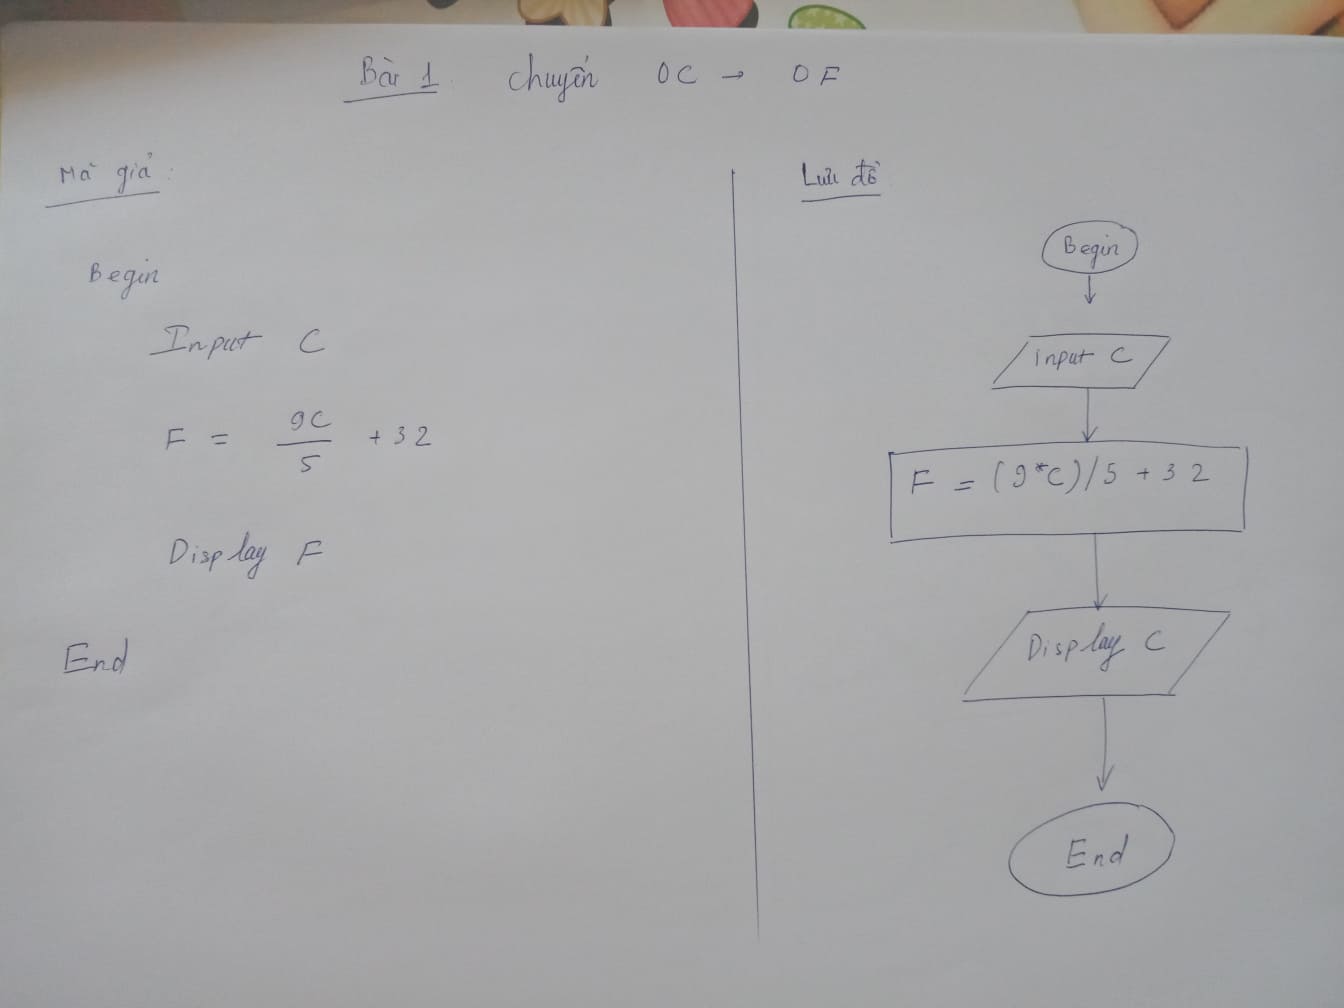 Bài 1 chuyển OC → OF
Mã giả:
Begin
Input C
F = 9C/5 + 32
Display F
End
Lưu đồ
Begin
Input C
F = (9*C)/5 + 32
Display C
End